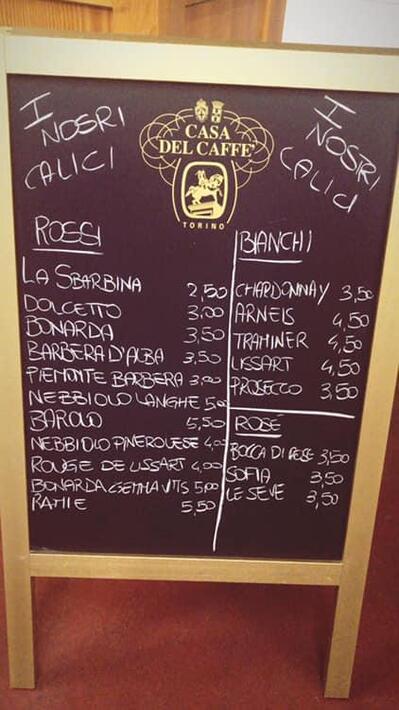 I
NOSRI
CALICI
CASA
DEL CAFFE'
TORINO
I
NOSTRI
CALICI
ROSSI
LA SBARBINA 2,50
DOLCETTO 3,00
BONARDA 3,50
BARBERA D'ALBA 3,50
PIEMONTE BARBERA 3,00
NEBBIOLO LANGHE 5,00
BAROLO 5,50
NEBBIOLO PINEROLESE 4,00
ROUGE DE LISSART 4,00
BONARDA GEMMA VITIS 5,00
RAMIE 5,50
BIANCHI
CHARDONNAY 3,50
ARNEIS 4,50
TRAMINER 4,50
LISSART 4,50
PROSECCO 3,50
ROSÉ
BOCCA DI ROSE 3,50
SOFIA 3,50
LE SEVE 3,50